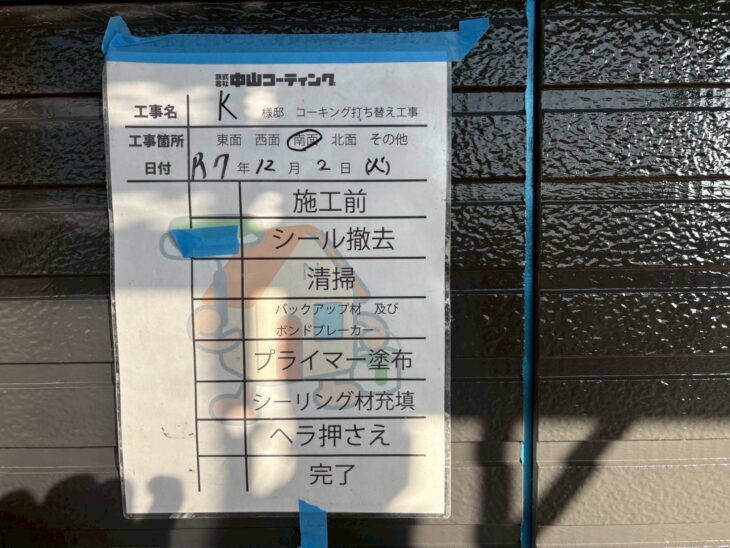 株式会社 中山コーティング
工事名 K 様邸 コーキング打ち替え工事
工事箇所 東面 西面 南面 北面 その他
日付 R7 年 12 月 2 日 (火)
施工前
シール撤去
清掃
バックアップ材 及び
ボンドブレーカー
プライマー塗布
シーリング材充填
ヘラ押さえ
完了